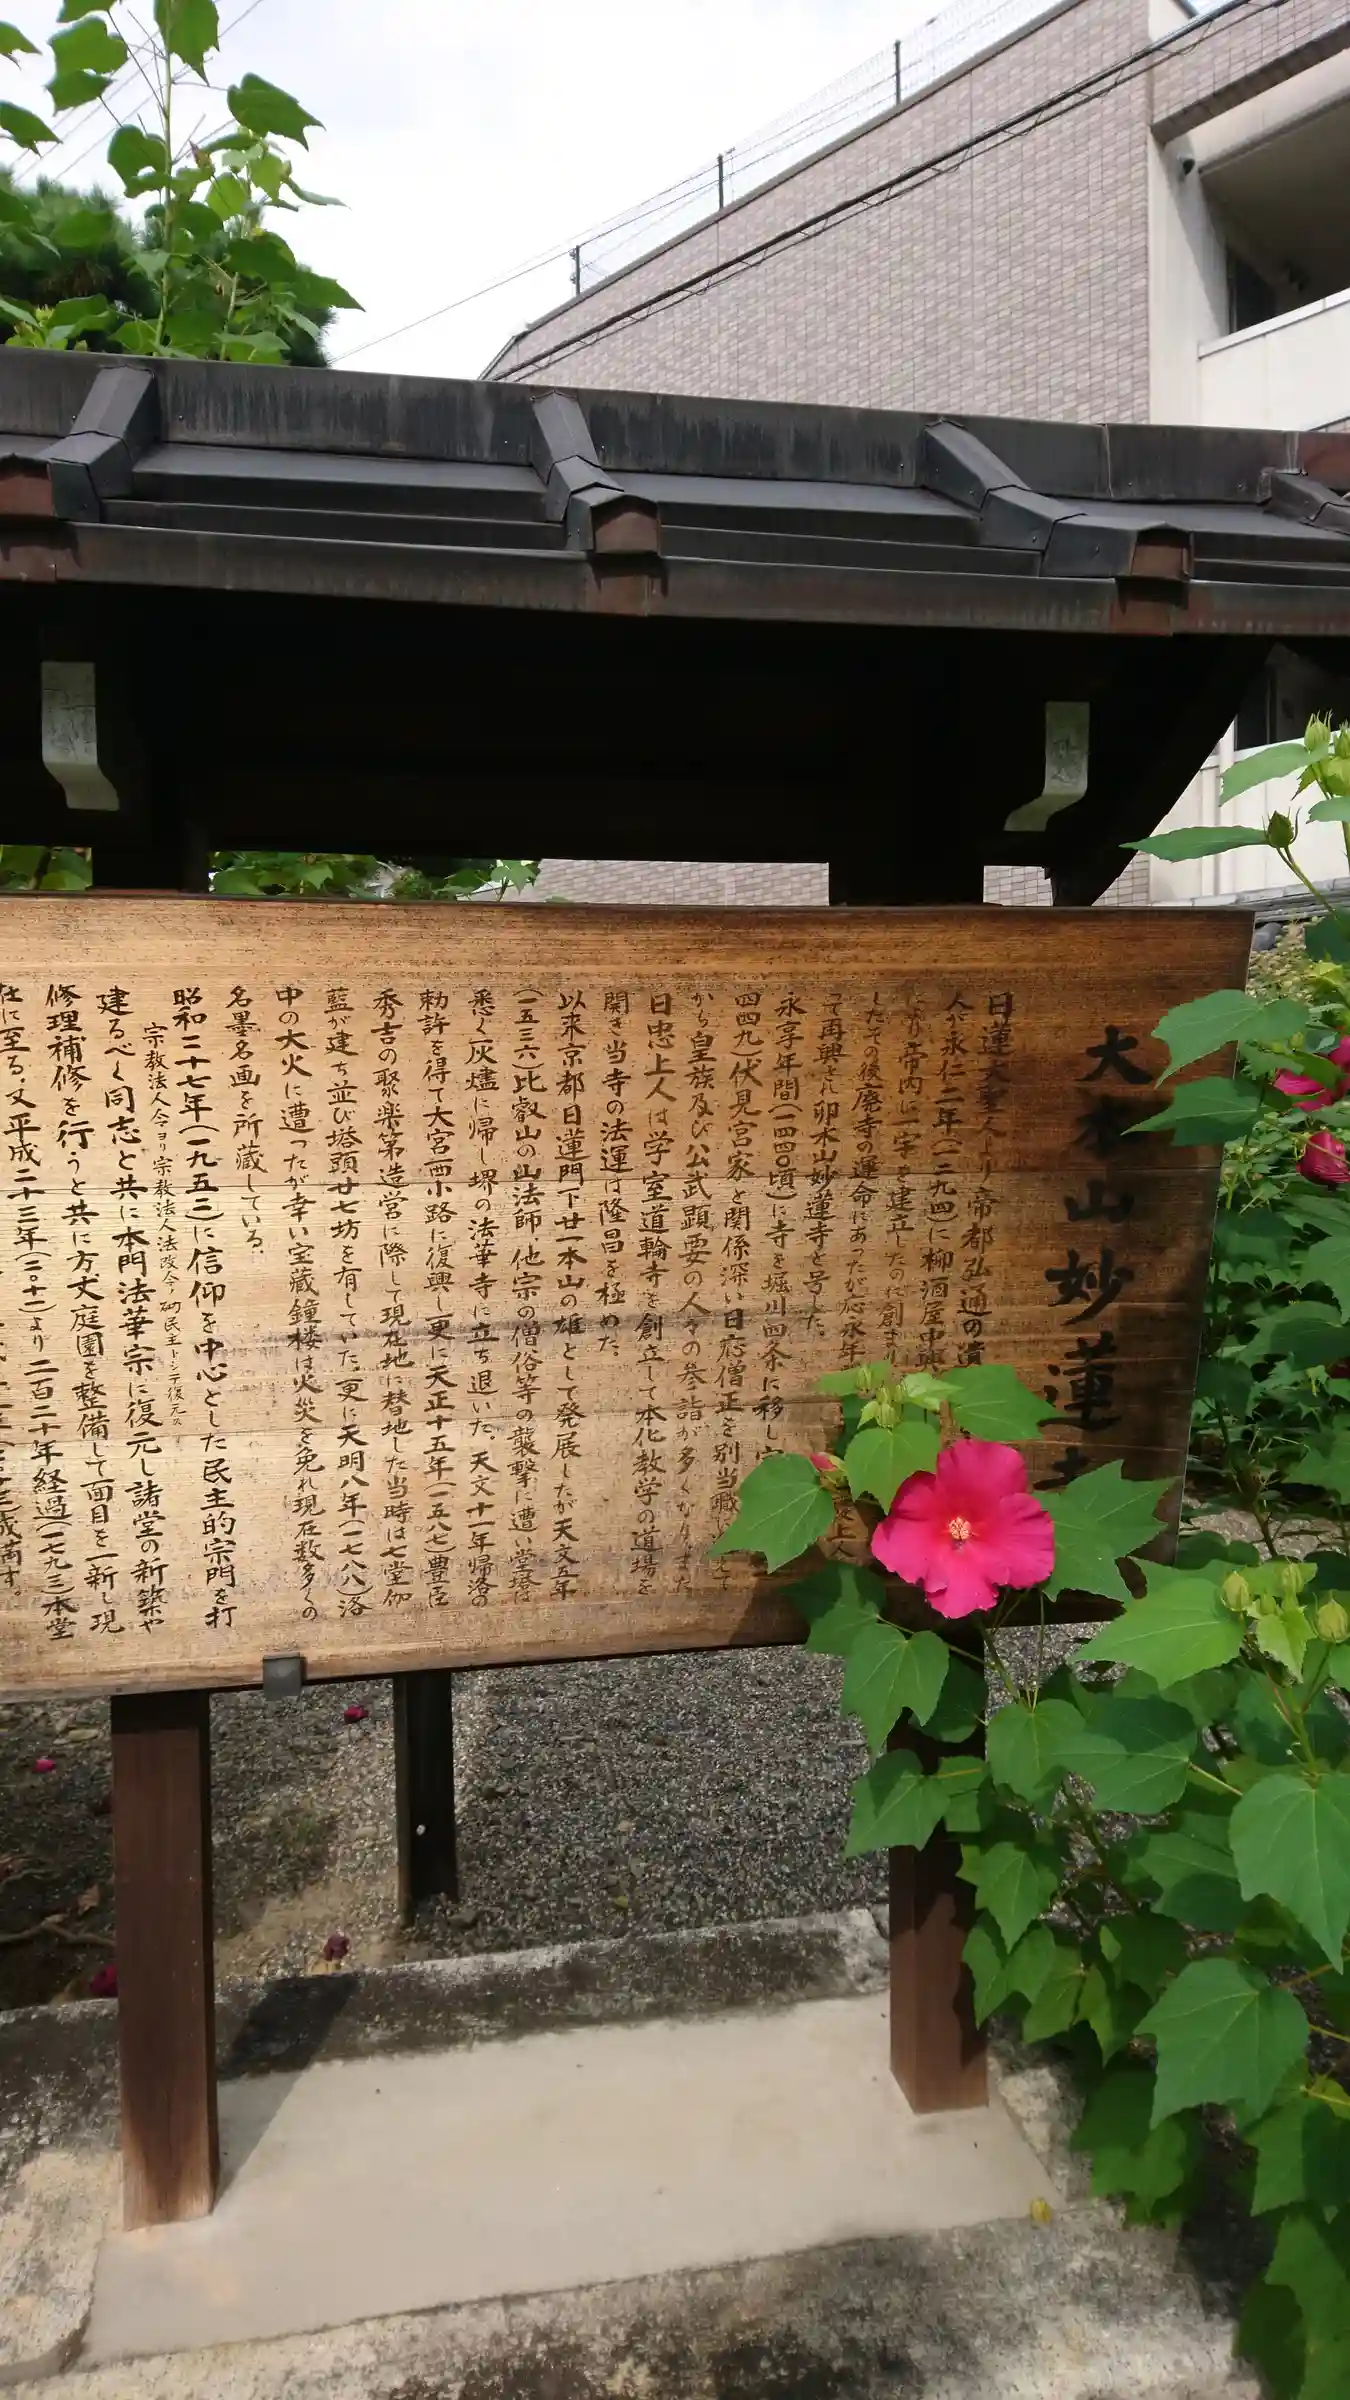 大本山妙蓮
日蓮大聖人より帝都弘通の遺
人が永仁二年(一二九四)に柳酒屋中興
より帝内に一宇を建立したのに創まり
したその後廃寺の運命にあったが応永年
て再興され卯木山妙蓮寺と号した。
永享年間(一四四〇頃)に寺を堀川四条に移し
四四九)伏見宮家と関係深い日応僧正を別当職に
から皇族及び公武顕要の人々の参詣が多くなりまた
日忠上人は学室道輪寺を創立して本化教学の道場を
開き当寺の法運は隆昌を極めた。
以来京都日蓮門下廿一本山の雄として発展したが天文五年
(一五三六)比叡山の山法師、他宗の僧俗等の襲撃に遭い堂塔は
悉く灰燼に帰し堺の法華寺に立ち退いた。天文十一年帰洛の
勅許を得て大宮西小路に復興し更に天正十五年(一五八七)豊臣
秀吉の聚楽第造営に際して現在地に替地した当時は七堂伽
藍が建ち並び塔頭廿七坊を有していた。更に天明八年(一七八八)洛
中の大火に遭ったが幸い宝蔵鐘楼は火災を免れ現在数多くの
名墨名画を所蔵している。
昭和二十七年(一九五二)に信仰を中心とした民主的宗門を打
宗教法人令ヨリ宗教法人法改令
建るべく同志と共に本門法華宗に復元し諸堂の新築や
修理補修を行うと共に方丈庭園を整備して面目を一新し現
在に至る,又平成二十三年(二〇十一)より二百二十年経過(一七九三)本堂
成満す。